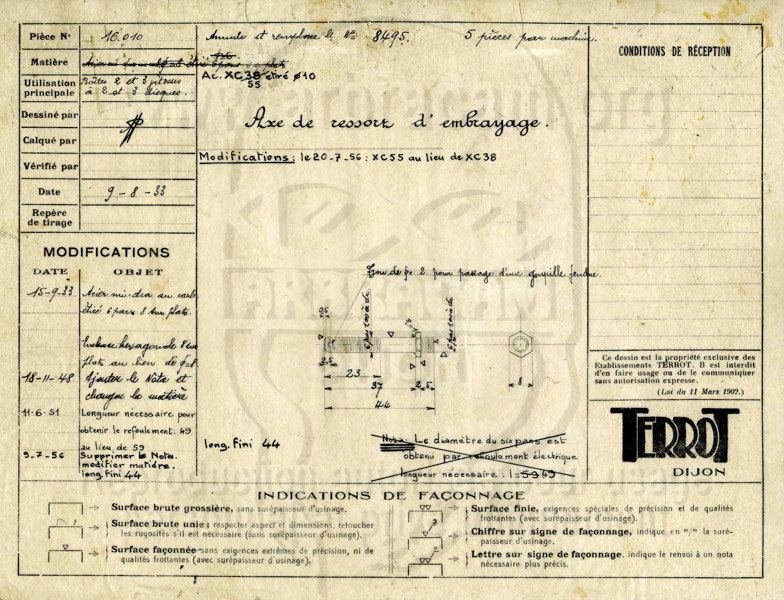 Pièce N° 16.010
Matière
Utilisation principale Boîtes 2 et 3 vitesses
à 2 et 3 disques.
Dessiné par
Calqué par
Vérifié par
Date 9-8-33
Repère de tirage
Annule et remplace le N° 8495.
5 pièces par machine.
Ac. XC38 étiré ø10
55
Axe de ressort d'embrayage.
Modifications: le 20-7-56: XC55 au lieu de XC38
CONDITIONS DE RÉCEPTION
MODIFICATIONS
DATE OBJET
15-9-33 Acier mi-dur au carb.
étiré 6 pans 8 sur plats.
hexagone de 8 sur
plats au lieu de ø=8.
18-11-48 Ajouter le Nota et
changer la matière
11-6-51 Longueur nécessaire pour
obtenir le refoulement: 49
au lieu de 59
9-7-56 Supprimer le Nota.
modifier matière.
long. fini 44
Trou de ø 2 pour passage d'une goupille fendue.
23
37
2,5
44
8
long. fini 44
Nota: Le diamètre du six pans est
obtenu par refoulement électrique
longueur nécessaire: l=59 49
Ce dessin est la propriété exclusive des
Etablissements TERROT. Il est interdit
d'en faire usage ou de le communiquer
sans autorisation expresse.
(Loi du 11 Mars 1902.)
TERROT
DIJON
INDICATIONS DE FAÇONNAGE
Surface brute grossière, sans surépaisseur d'usinage.
Surface brute unie; respecter aspect et dimensions, retoucher
les rugosités s'il est nécessaire (sans surépaisseur d'usinage).
Surface façonnée sans exigences extrêmes de précision, ni de
qualités frottantes (avec surépaisseur d'usinage).
Surface finie, exigences spéciales de précision et de qualités
frottantes (avec surépaisseur d'usinage).
Chiffre sur signe de façonnage, indique en m/m la suré-
paisseur d'usinage.
Lettre sur signe de façonnage, indique le renvoi à un nota
nécessaire plus précis.